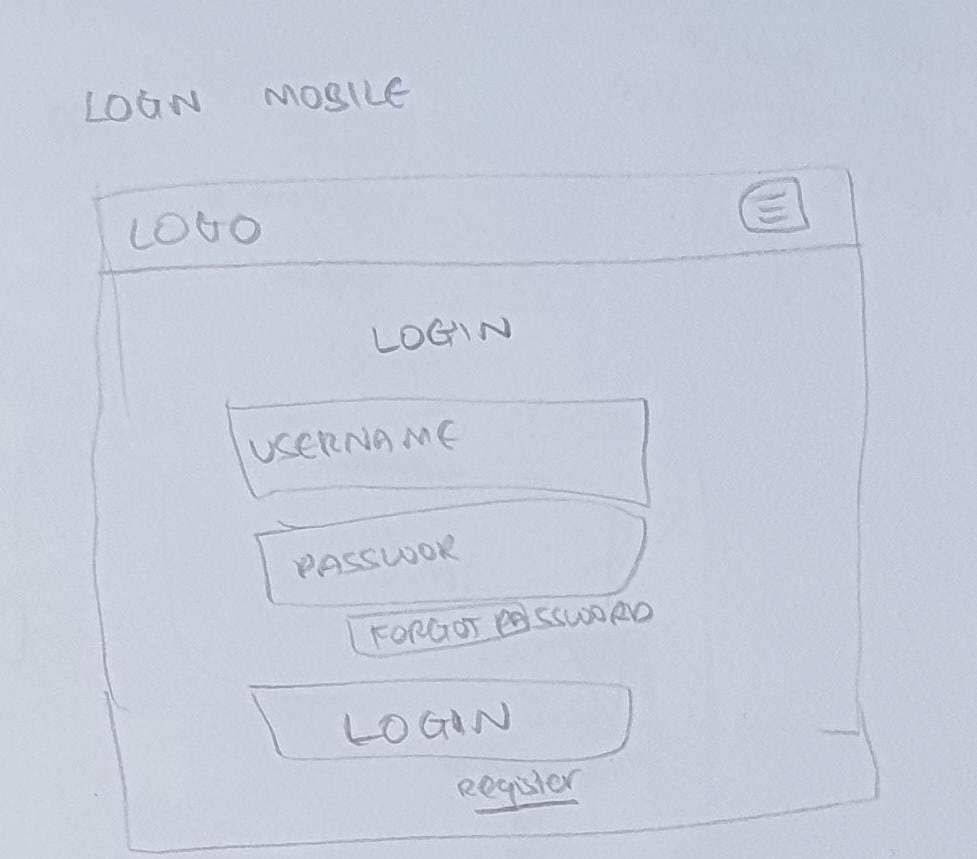 LOGIN MOBILE
LOGO
LOGIN
USERNAME
PASSWOR
FORGOT PASSWORD
LOGIN
Register